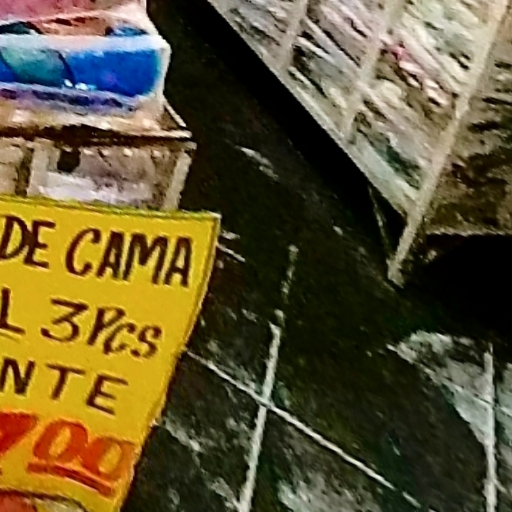 DE CAMA
L 3Pcs
NTE
700